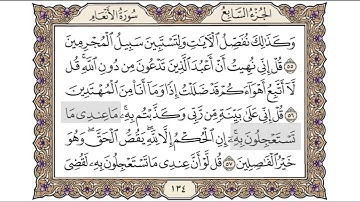 الجزء السابع
سورة الأنعام
وَكَذَٰلِكَ نُفَصِّلُ الْآيَاتِ وَلِتَسْتَبِينَ سَبِيلُ الْمُجْرِمِينَ
٥٥ قُلْ إِنِّي نُهِيتُ أَنْ أَعْبُدَ الَّذِينَ تَدْعُونَ مِن دُونِ اللَّهِ ۚ قُل
لَّا أَتَّبِعُ أَهْوَاءَكُمْ ۙ قَدْ ضَلَلْتُ إِذًا وَمَا أَنَا مِنَ الْمُهْتَدِينَ
٥٦ قُلْ إِنِّي عَلَىٰ بَيِّنَةٍ مِّن رَّبِّي وَكَذَّبْتُم بِهِ ۚ مَا عِندِي مَا
تَسْتَعْجِلُونَ بِهِ ۚ إِنِ الْحُكْمُ إِلَّا لِلَّهِ ۖ يَقُصُّ الْحَقَّ ۖ وَهُوَ
خَيْرُ الْفَاصِلِينَ ٥٧ قُل لَّوْ أَنَّ عِندِي مَا تَسْتَعْجِلُونَ بِهِ لَقُضِيَ
١٣٤